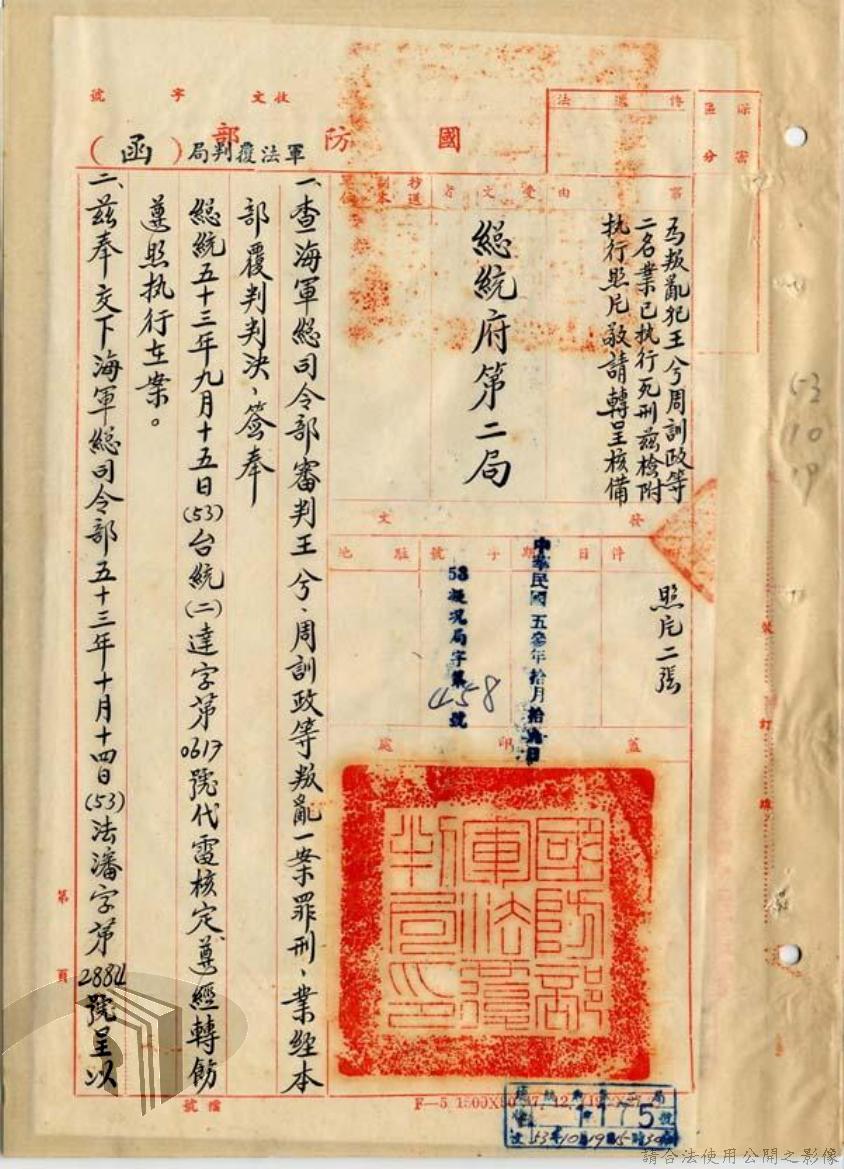 收文 字 號
國防部
軍法覆判局(函)
傳遞法
保密區分
事由
受文者
抄送副本單位
為叛亂犯王兮周訓政等
二名業已執行死刑茲檢附
執行照片敬請轉呈核備
總統府第二局
發文
附件
日期
字號
駐地
照片二張
中華民國五參年拾月拾九日
53覆況局字第458號
蓋印處
國防部軍法覆判局印
一、查海軍總司令部審判王兮、周訓政等叛亂一案罪刑、業經本
部覆判判決、簽奉
總統五十三年九月十五日(53)台統(二)達字第0617號代電核定遵經轉飭
遵照執行在案。
二、茲奉交下海軍總司令部五十三年十月十四日(53)法潘字第2884號呈以
第 頁
檔號
裝訂線
53
10
19
1175
53年10月19日
請合法使用公開之影像